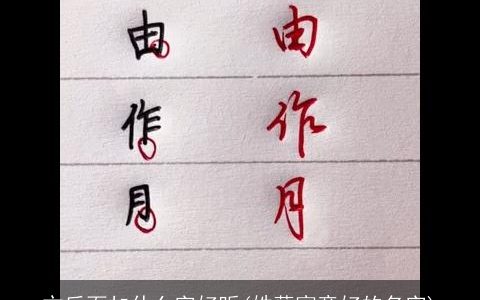 由 由
作 作
月 月
后面加什么字好听(姓 寓意好的名字)